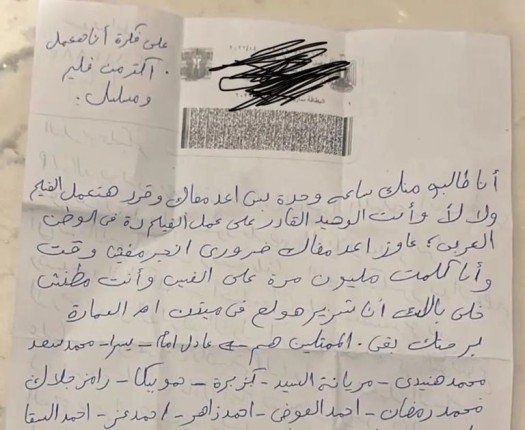 على فكرة أنا هعمل
أكتر من فيلم
ومسلسل:
أنا طالب منك ساعة وحدة بس اعد معاك وقرر هتعمل الفيلم
ولا لأ وأنت الوحيد القادر على عمل الفيلم دة فى الوطن
العربى؛ عاوز اعد معاك ضرورى انجر مفيش وقت
وأنا كلمت مليون مرة على الفيس وأنت مطنش
خلى بالك أنا شرير هولع فى ام العمارة
بقى. الممثلين هم عادل امام - يسرا - محمد سعد
محمد هنيدى - كزبرة - حمو بيكا - رامز جلال
محمد رمضان - احمد العوضى - احمد زاهر - احمد عز - احمد السقا